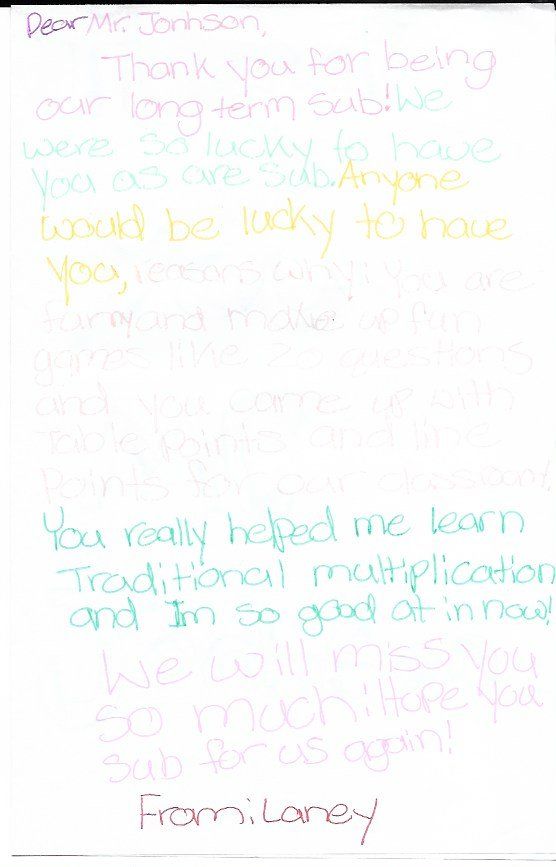 Dear Mr. Jonhson,
Thank you for being
our long term sub! We
were so lucky to have
you as are sub. Anyone
would be lucky to have
you, reasons why: you are
funny and make up fun
games like 20 questions
and you came up with
Table Points and line
Points for our classroom!
You really helped me learn
Traditional multiplication
and Im so good at in now!
We will miss you
so much! Hope you
sub for us again!
From: Laney